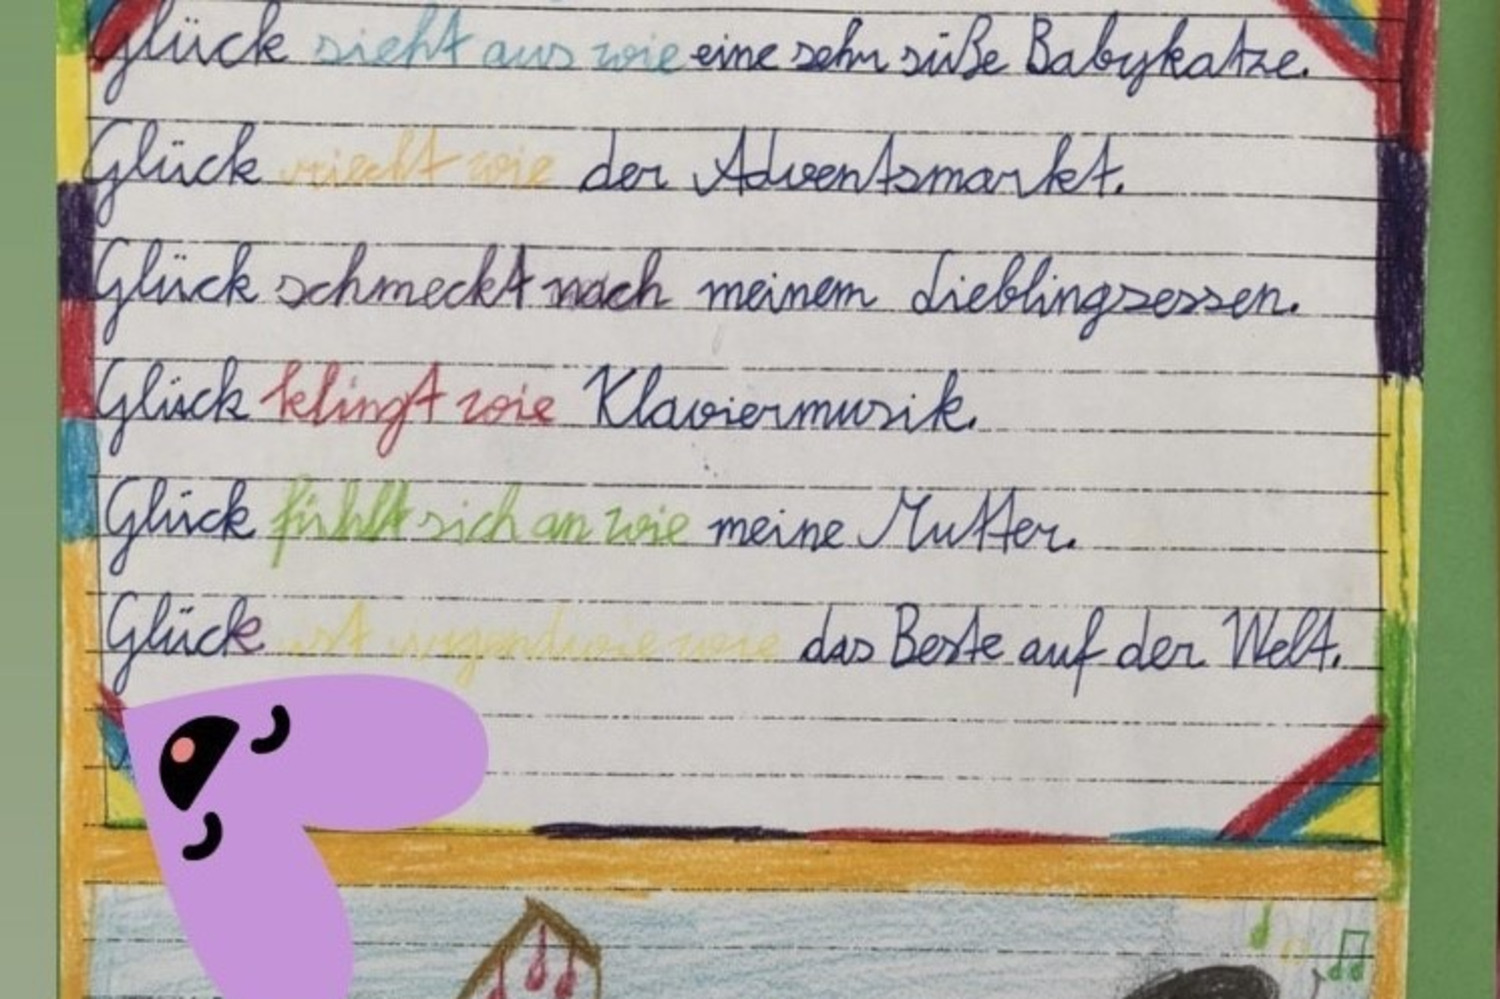 Glück sieht aus wie eine sehr süße Babykatze.
Glück riecht wie der Adventsmarkt.
Glück schmeckt nach meinem Lieblingsessen.
Glück klingt wie Klaviermusik.
Glück fühlt sich an wie meine Mutter.
Glück ist irgendwie wie das Beste auf der Welt.